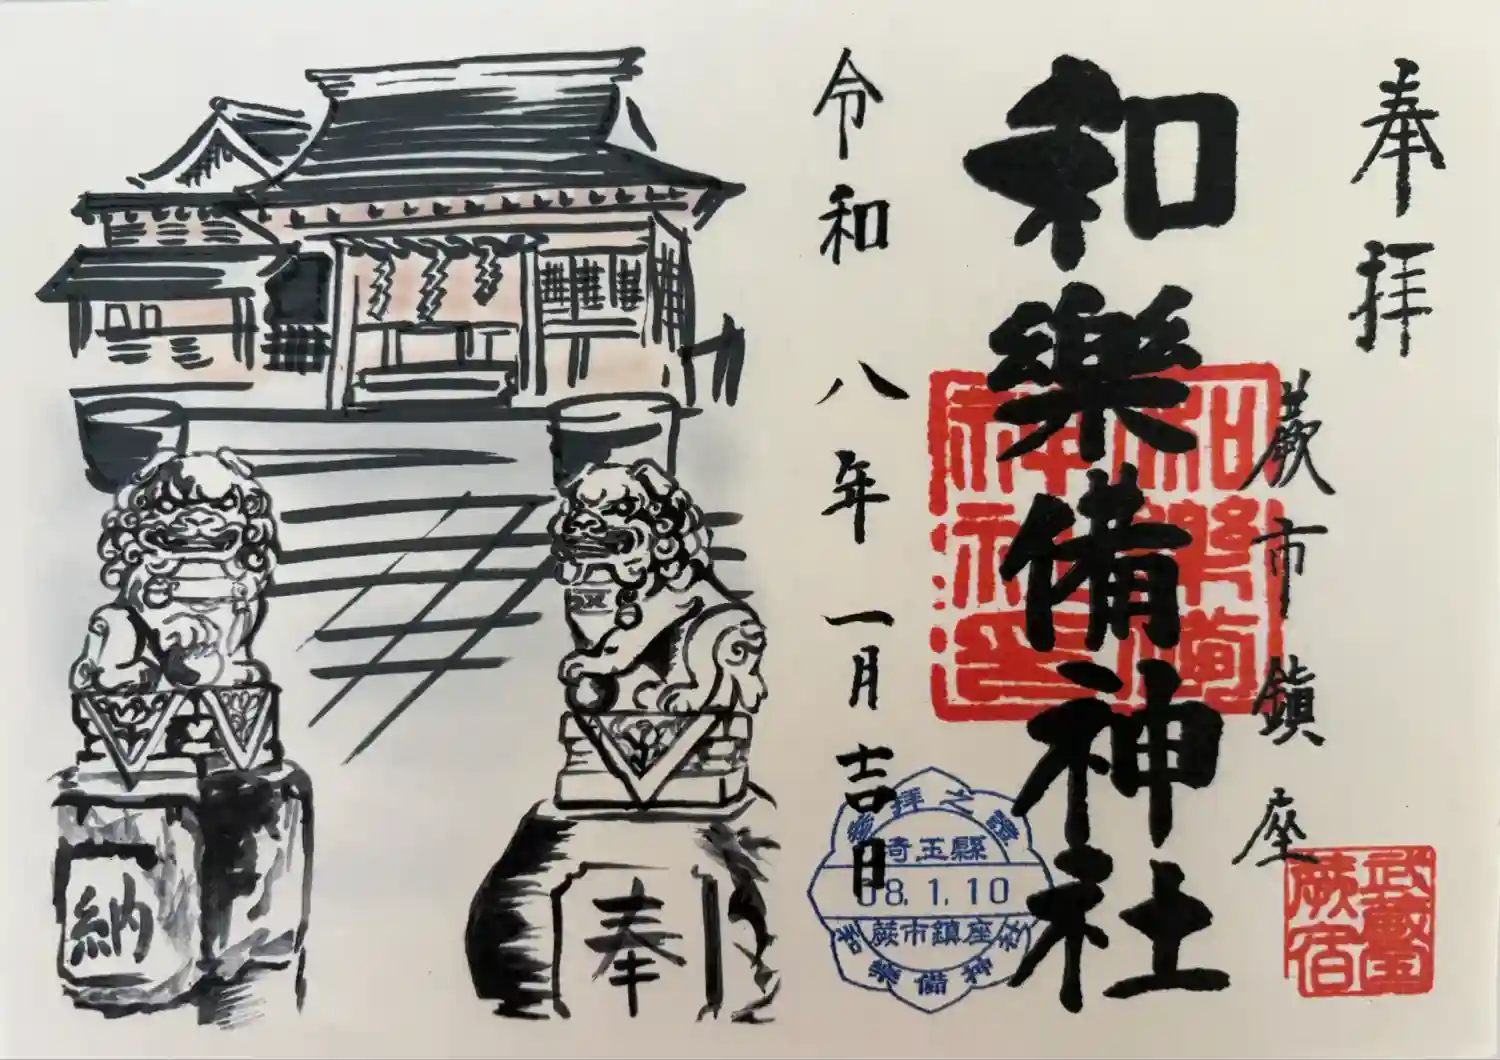 奉拝
蕨市鎮座
和樂備神社
和樂備
神社印
武蔵国
蕨宿
令和八年一月吉日
参拝之證
埼玉縣
08.1.10
蕨市鎮座
和樂備神社
奉
納